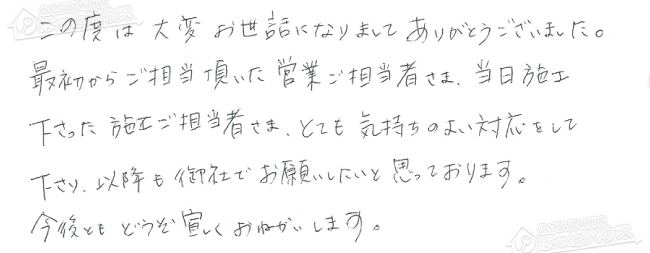 この度は大変お世話になりましてありがとうございました。
最初からご担当頂いた営業ご担当者さま、当日施工
下さった施工ご担当者さま、とても気持ちのよい対応をして
下さり、以降も御社でお願いしたいと思っております。
今後ともどうぞ宜しくおねがいします。